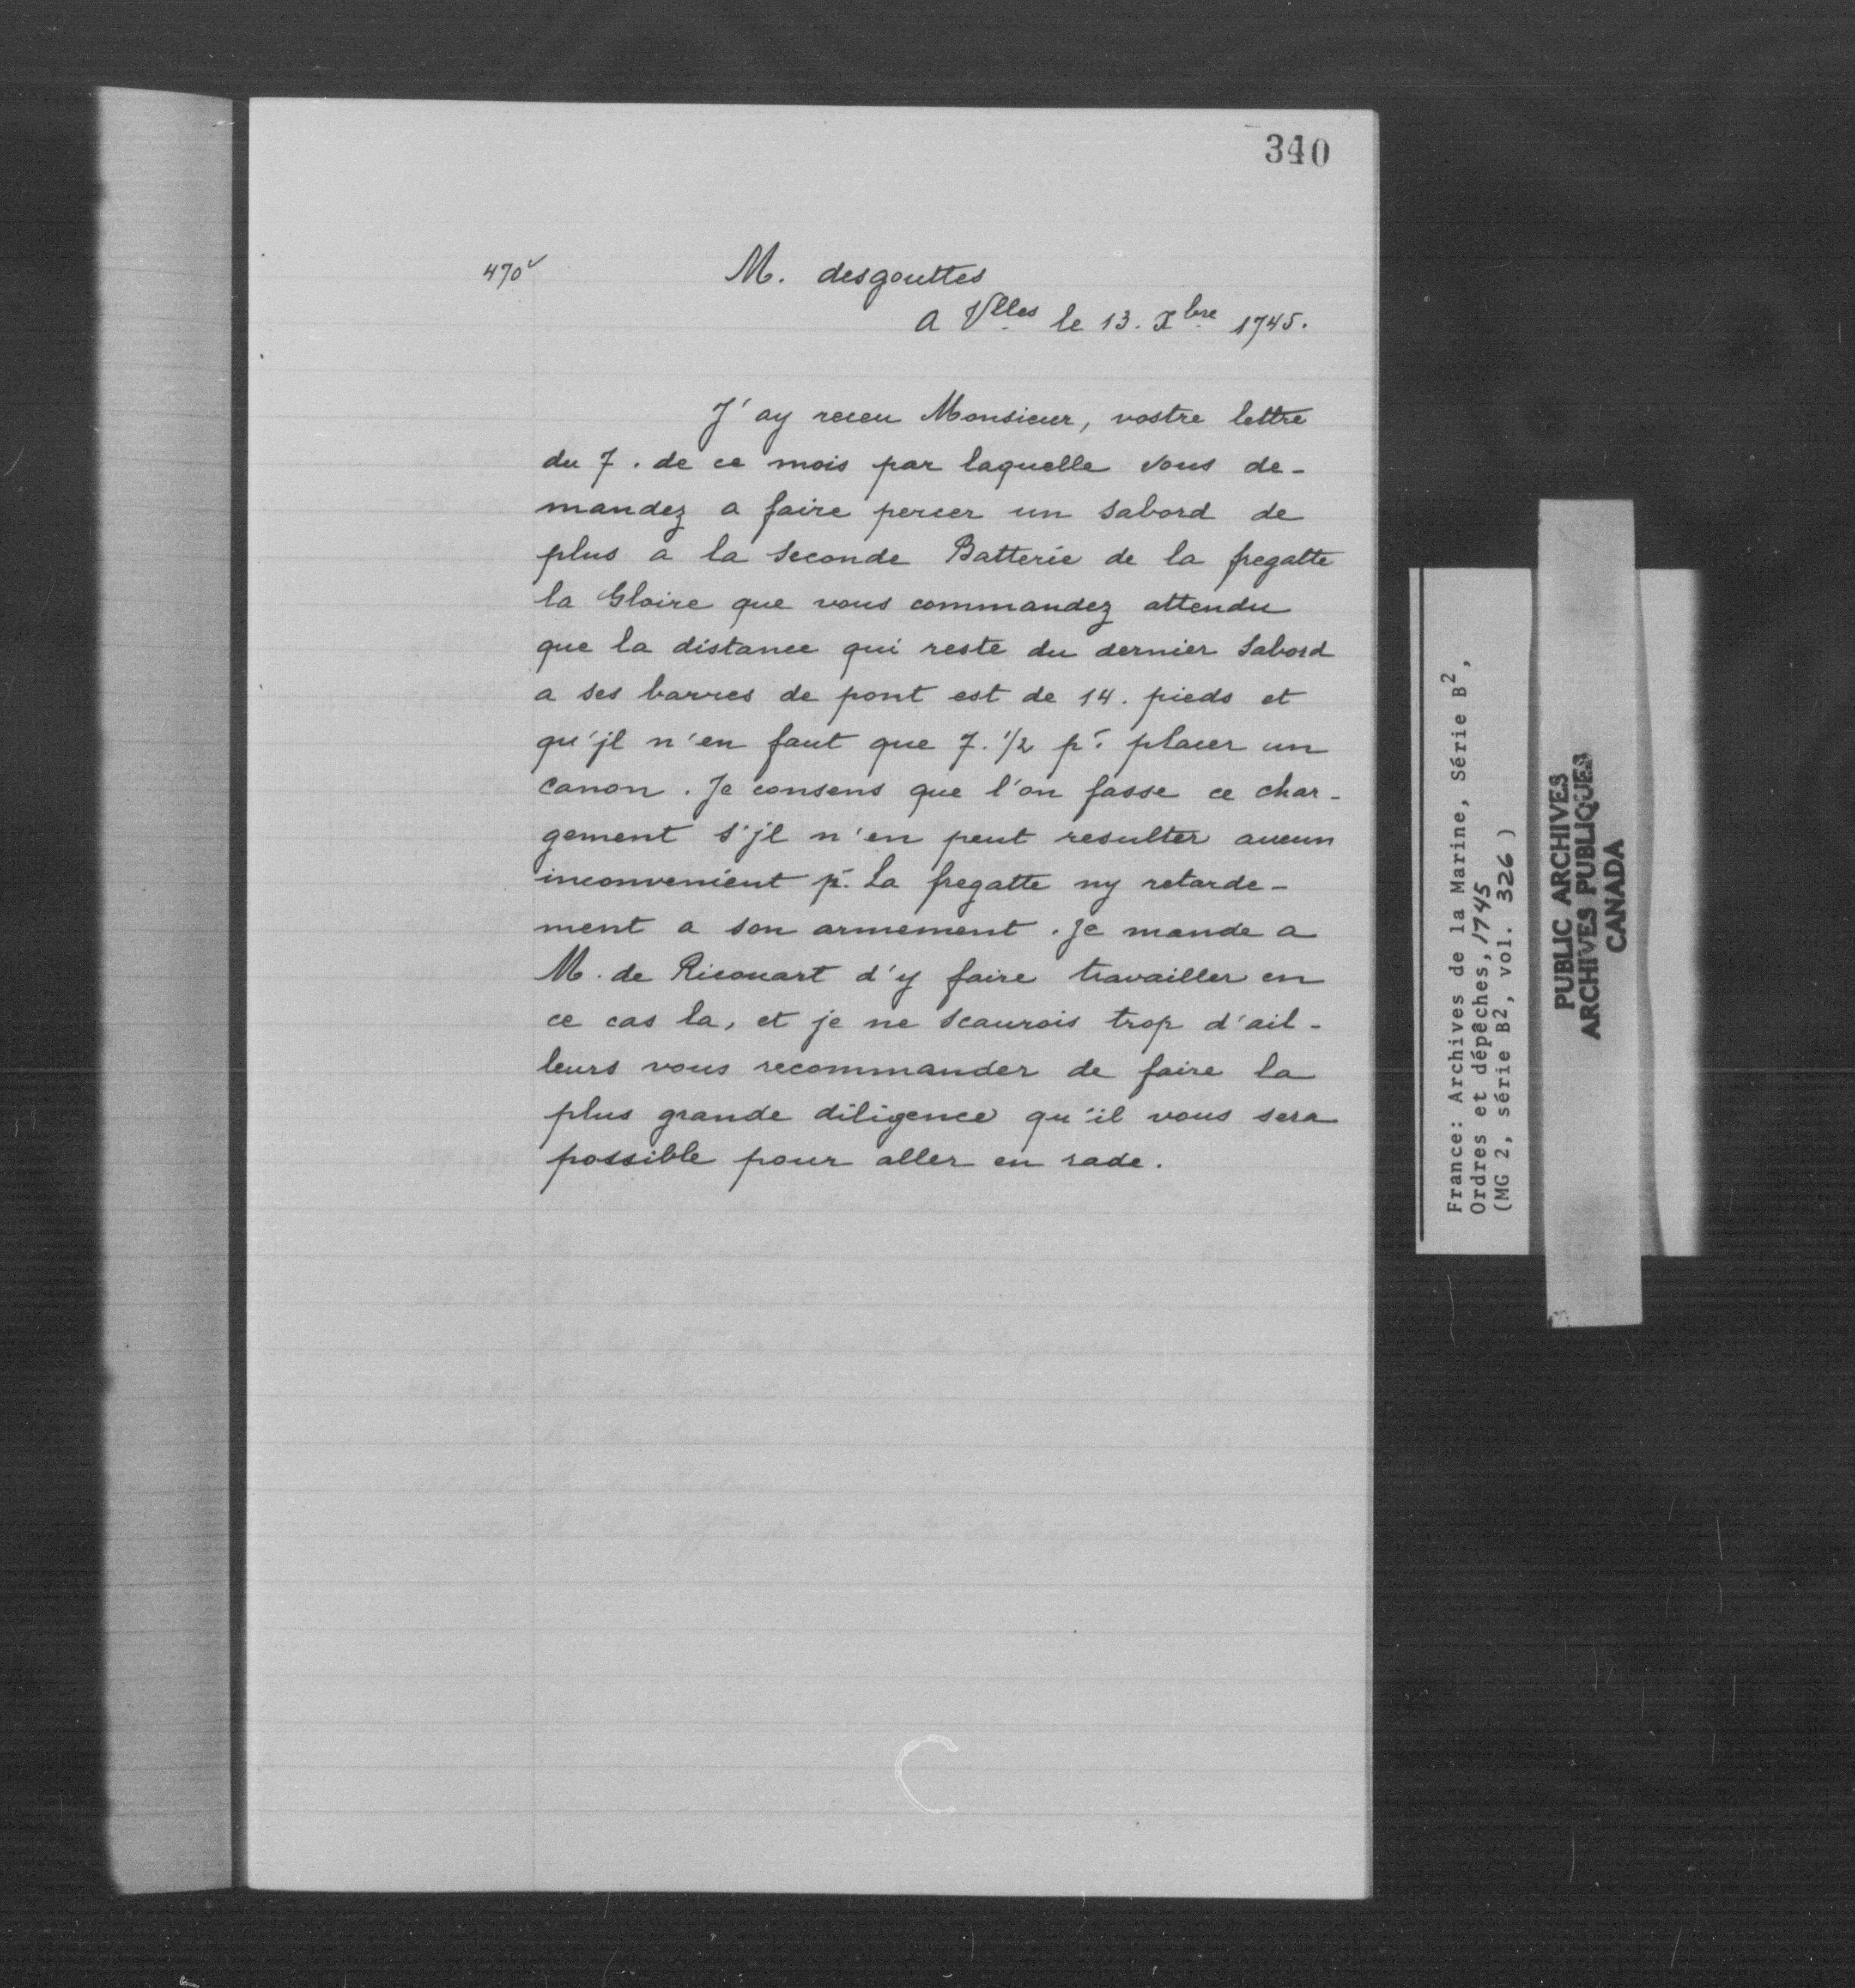 340
470v
M. desgouttes
a Vlles le 13. Xbre 1745.
J'ay receu Monsieur, vostre lettre
du 7. de ce mois par laquelle vous de-
mandez a faire percer un sabord de
plus a la seconde Batterie de la fregatte
la Gloire que vous commandez attendu
que la distance qui reste du dernier sabord
a ses barres de pont est de 14. pieds et
qu'jl n'en faut que 7. 1/2 pr. placer un
canon. Je consens que l'on fasse ce char-
gement s'jl n'en peut resulter aucun
inconvenient pr. la fregatte ny retarde-
ment a son armement. Je mande a
M. de Ricouart d'y faire travailler en
ce cas la, et je ne scaurois trop d'ail-
leurs vous recommander de faire la
plus grande diligence qu'il vous sera
possible pour aller en rade.
France: Archives de la Marine, Série B2,
Ordres et dépêches, 1745
(MG 2, série B2, vol. 326)
PUBLIC ARCHIVES
ARCHIVES PUBLIQUES
CANADA